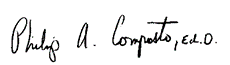 Philip A. Composto, Ed.D.